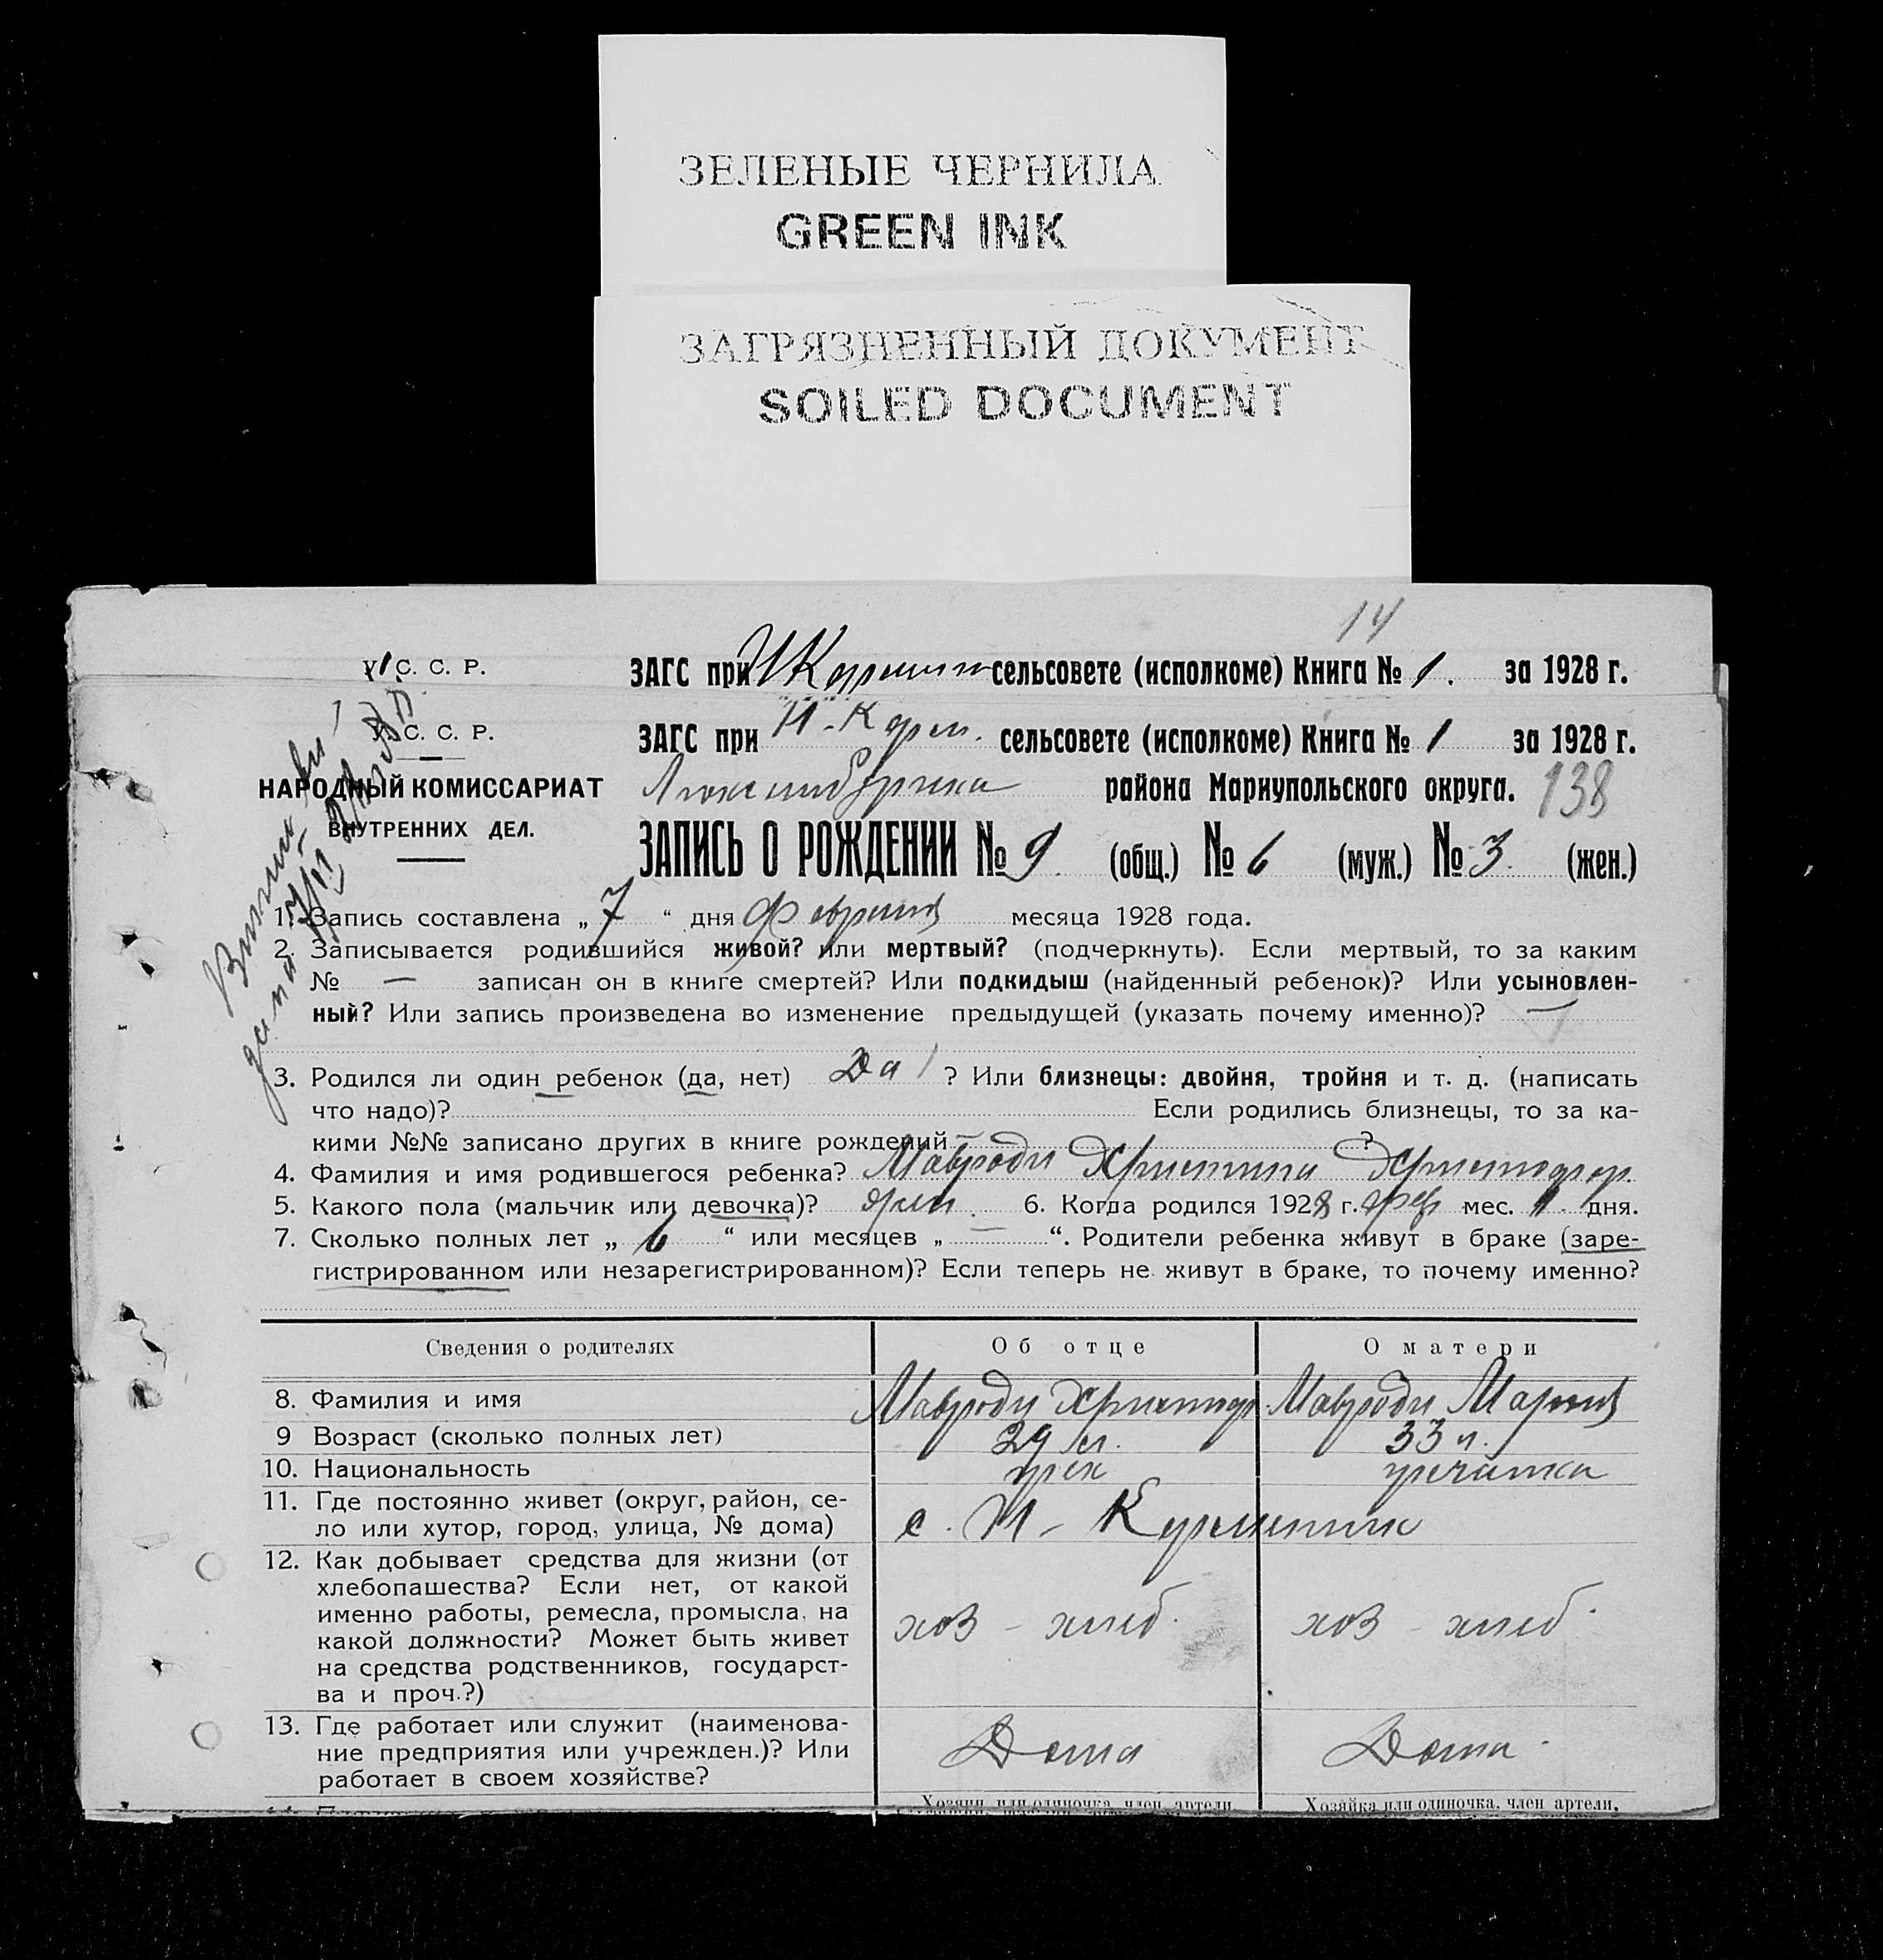 ЗЕЛЕНЫЕ ЧЕРНИЛА
GREEN INK
ЗАГРЯЗНЕННЫЙ ДОКУМЕНТ
SOILED DOCUMENT
14
С. С. Р.
ЗАГС при сельсовете (исполкоме) Книга № 1. за 1928 г.
С. С. Р.
ЗАГС при сельсовете (исполкоме) Книга № 1 за 1928 г.
НАРОДНЫЙ КОМИССАРИАТ
района Мариупольского округа. 138
ВНУТРЕННИХ ДЕЛ.
ЗАПИСЬ О РОЖДЕНИИ № 9 (общ.) № 6 (муж.) № 3 (жен.)
1. Запись составлена „ 7 “ дня февраля месяца 1928 года.
2. Записывается родившийся живой? или мертвый? (подчеркнуть). Если мертвый, то за каким
№ — записан он в книге смертей? Или подкидыш (найденный ребенок)? Или усыновлен-
ный? Или запись произведена во изменение предыдущей (указать почему именно)? —
3. Родился ли один ребенок (да, нет) Да ? Или близнецы: двойня, тройня и т. д. (написать
что надо)? Если родились близнецы, то за ка-
кими №№ записано других в книге рождений — ?
4. Фамилия и имя родившегося ребенка? Мавроди Христина Христофор.
5. Какого пола (мальчик или девочка)? жен. 6. Когда родился 1928 г. фев мес. 1. дня.
7. Сколько полных лет „ 6 “ или месяцев „ — “. Родители ребенка живут в браке (заре-
гистрированном или незарегистрированном)? Если теперь не живут в браке, то почему именно?
Сведения о родителях Об отце О матери
8. Фамилия и имя Мавроди Христоф. Мавроди Мария
9 Возраст (сколько полных лет) 39 л. 33 л.
10. Национальность грек гречанка
11. Где постоянно живет (округ, район, се-
ло или хутор, город, улица, № дома) с.
12. Как добывает средства для жизни (от
хлебопашества? Если нет, от какой
именно работы, ремесла, промысла, на
какой должности? Может быть живет
на средства родственников, государст-
ва и проч.?)
хоз - хлеб. хоз - хлеб.
13. Где работает или служит (наименова-
ние предприятия или учрежден.)? Или
работает в своем хозяйстве?
Дома Дома
Хозяин или одиночка, член артели Хозяйка или одиночка, член артели,